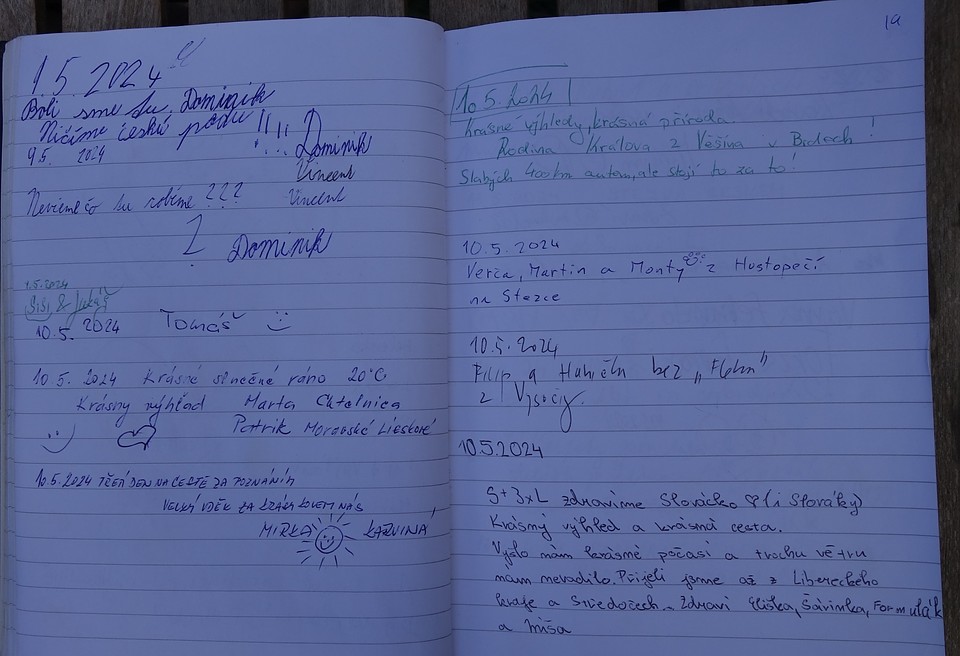 1.5.2024
Boli sme tu, Dominik
Ničíme českú pôdu !!!! Dominik
9.5. 2024
Vincent
Nevieme čo tu robíme ??? Vincent
Dominik
1.5.2024
Sisi & Lukáš
10.5. 2024 Tomáš
10 5. 2024 Krásné slnečné ráno 20°C
Krásny výhľad Marta Chtelnica
Patrik Moravské Lieskové
10.5.2024 TŘETÍ DEN NA CESTĚ ZA POZNÁNÍM
VELKÝ VDĚK ZA KRÁSU KOLEM NÁS
MIRKA KARVINÁ
19
10.5.2024
Krásné výhledy, krásná příroda.
Rodina Králova z Věšína v Brdech!
Slabých 400km autem, ale stojí to za to!
10.5.2024
Verča, Martin a Monty z Hustopečí
na Stezce
10.5.2024
Filip a bez
z Vysočiny
10.5.2024
S+3xL zdravíme Slovácko (i Slováky)
Krásný výhled a krásná cesta.
Vyšlo nám krásné počasí a trochu větru
nám nevadilo. Přijeli jsme až z Libereckého
kraje a Středočech. Zdraví Eliška, Šárinka, Formulák
a Míša